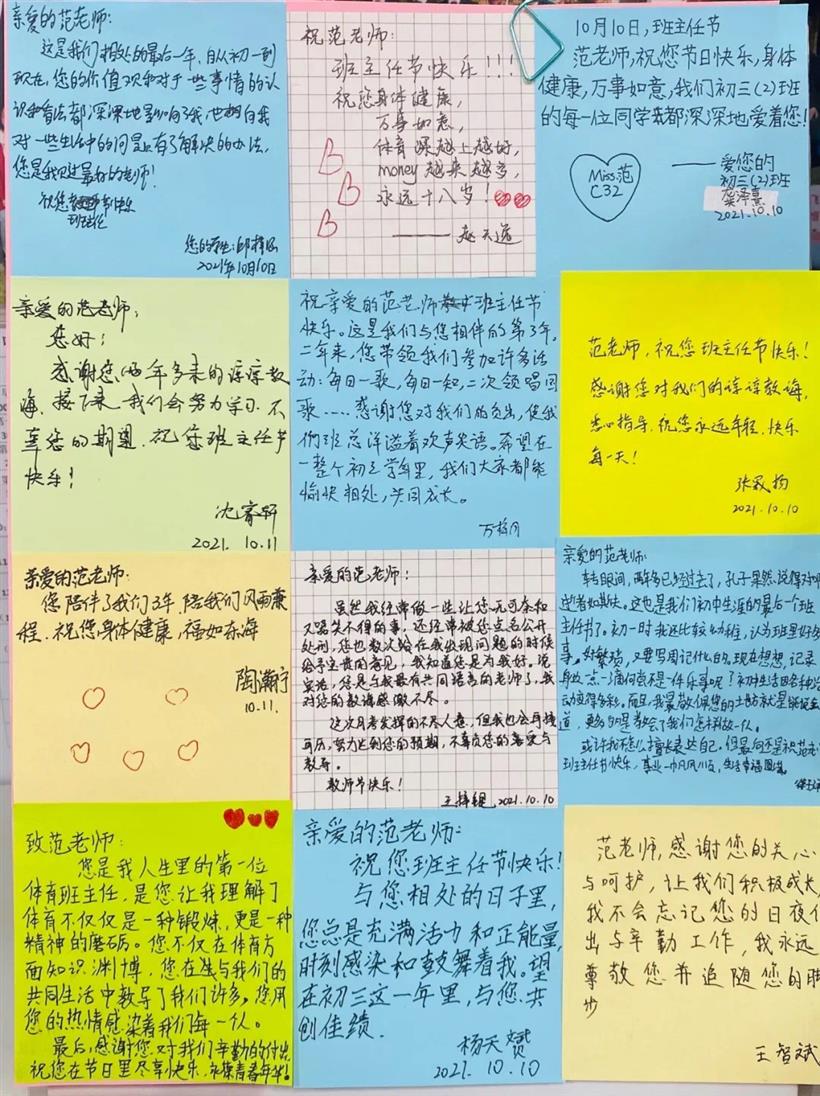 亲爱的范老师:
这是我们相处的最后一年,自从初一到
现在,您的价值观和对于一些事情的认
识和看法都深深地影响了我,也让我
对一些生活中的问题有了解决的办法,
您是我见过最好的老师!
祝您节快乐
班主任
您的学生:
2021年10月10日
祝范老师:
班主任节快乐!!!
祝您身体健康,
万事如意,
体育课越上越好,
money越来越多,
永远十八岁!
—— 赵天逸
10月10日,班主任节
范老师,祝您节日快乐,身体
健康,万事如意,我们初三(2)班
的每一位同学都深深地爱着您!
Miss.范
C32
—— 爱您的
初三(2)班
龚泽熹
2021.10.10
亲爱的范老师:
您好:
感谢您两年多来的谆谆教
诲,接下来我们会努力学习,不
辜您的期望,祝您班主任节
快乐!
沈睿轩
2021.10.11
祝亲爱的范老师班主任节
快乐。这是我们与您相伴的第3年,
二年来,您带领我们参加许多活
动:每日一歌,每日一知,二次领唱国
歌……感谢您对我们的付出,使我
们班总洋溢着欢声笑语。希望在
一整个初三学年里,我们大家都能
愉快相处,共同成长。
范老师,祝您班主任节快乐!
感谢您对我们的谆谆教诲,
悉心指导,祝您永远年轻,快乐
每一天!
2021.10.10
亲爱的范老师:
您陪伴了我们3年,陪我们风雨兼
程,祝您身体健康,福如东海
陶瀚宇
10.11.
亲爱的范老师:
虽然我经常做一些让您无可奈和
又哭笑不得的事,还经常被您点名公开
处刑,您也数次给在我发现问题的时候
给予宝贵的意见,我知道您是为我好。说
实话,您是与我最有共同语言的老师了,我
对您的教诲感激不尽。
这次月考发挥的不尽人意,但我也会再接
再厉,努力达到您的预期,不辜负您的喜爱与
教导。
教师节快乐!
2021.10.10
亲爱的范老师:
转眼间,两年多已经过去了,孔子果然说得对啊
逝者如斯夫。这也是我们初中生涯的最后一个班
主任节了。初一时我还比较幼稚,认为班里好多
事,好繁琐,又要写周记什么的,现在想想,记录
身边点滴何尝不是一件乐事呢?初中生活因各种活
动变得多彩。而且,我最敬佩您的
道,更多的是教会了我们怎样做一个人。
或许我不怎么擅长表达自己,但最向还是祝范老师
班主任节快乐,事业一帆风顺,生活幸福圆满。
致范老师:
您是我人生里的第一位
体育班主任,是您让我理解了
体育不仅仅是一种锻炼,更是一种
精神的磨砺。您不仅在体育方
面知识渊博,您在生与我们的
共同生活中教导了我们许多,您用
您的热情感染着我们每一个人。
最后,感谢您对我们辛勤的付出,
祝您在节日里尽享快乐,永葆青春年华!
亲爱的范老师:
祝您班主任节快乐!
与您相处的日子里,
您总是充满活力和正能量,
时刻感染和鼓舞着我。望
在初三这一年里,与您共
创佳绩.
杨天赟
2021.10.10
范老师,感谢您的关心
与呵护,让我们积极成长,
我不会忘记您的日夜付
出与辛勤工作,我永远
尊敬您并追随您的脚
步
王智斌